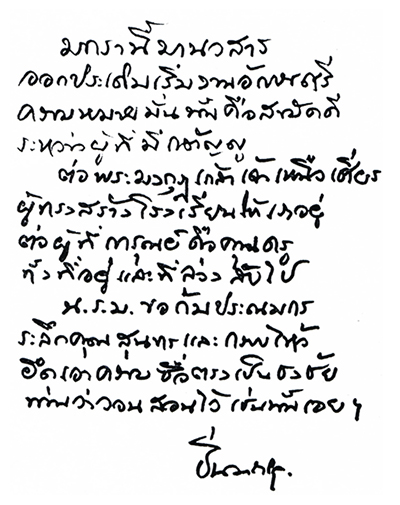 มกรานี้มานวสาร
ออกประเดิมเริ่มงานอันเกษมศรี
ความหมายมั่นนั้นคือสามัคคี
ระหว่างผู้ที่มีกตัญญู
ต่อพระมงกุฎเกล้าเจ้าเหนือเศียร
ผู้ทรงสร้างโรงเรียนให้เราอยู่
ต่อผู้ที่การุณย์คือคุณครู
ทั้งที่อยู่และที่ล่วงลับไป
น.ร.ม. ขอก้มประณมกร
ระลึกคุณสุนทรและกราบไหว้
ยึดเอาความซื่อตรงเป็นธงชัย
ท่านว่าวอนสอนไว้เช่นนั้นเอย ฯ
ปิ่น